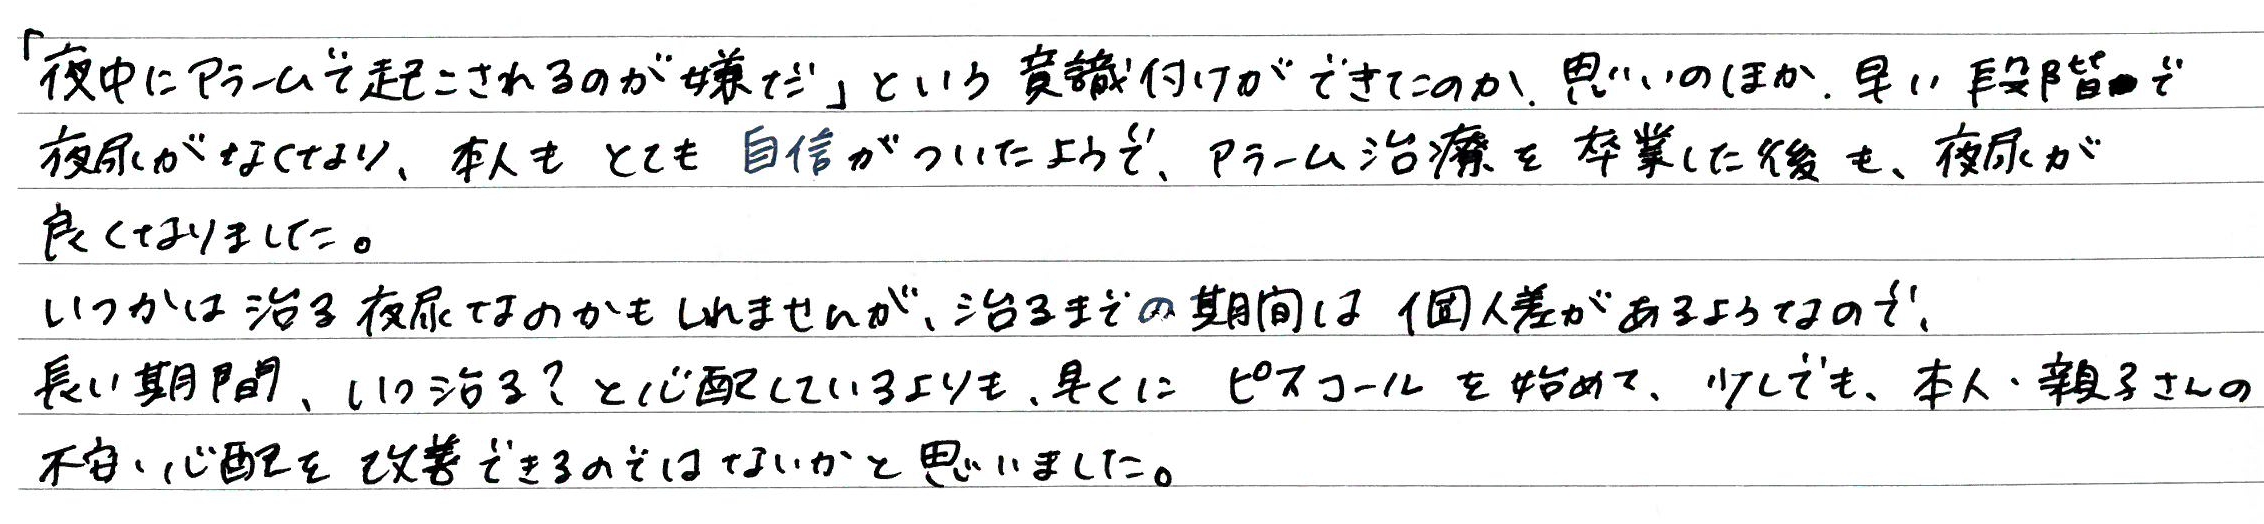 「夜中にアラームで起こされるのが嫌だ」という意識付けができたのか、思いのほか、早い段階で
夜尿がなくなり、本人もとても自信がついたようで、アラーム治療を卒業した後も、夜尿が
良くなりました。
いつかは治る夜尿なのかもしれませんが、治るまでの期間は個人差があるようなので、
長い期間、いつ治る？と心配しているよりも、早くにピスコールを始めて、少しでも、本人・親子さんの
不安・心配を改善できるのではないかと思いました。